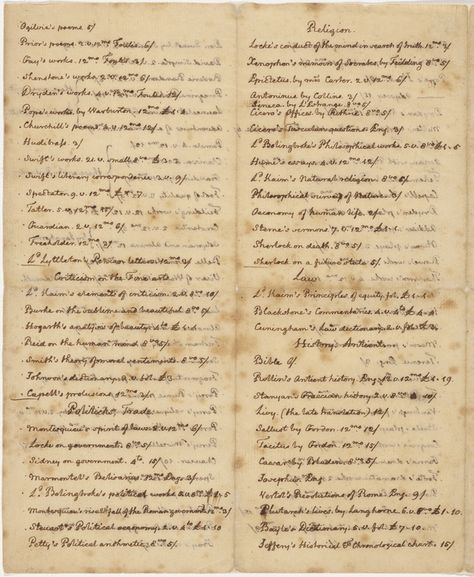 Ogilvie's poems. 5/
Prior's poems. 2.v. 12mo. Foulis. 6/
Gay's works. 12mo. Foulis. 3/
Shenstone's works. 2.v. 12mo. 6/
Dryden's works. 4.v. 12mo. Foulis. 12/
Pope's works. by Warburton. 12mo. £1-4
Churchill's poems. 4.v. 12mo. 12/
Hudibrass. 3/
Swift's works. 21.v. small 8vo. £3-3
Swift's literary correspondence. 3.v. 9/
Spectator. 9.v. 12mo. £1-7
Tatler. 5.v. 12mo. 15/
Guardian. 2.v. 12mo. 6/
Freeholder. 12mo. 3/
Ld. Lyttleton's Persian letters. 12mo. 3/
Criticism on the Fine arts.
Ld. Kaim's elements of criticism. 2.v. 8vo. 10/
Burke on the sublime and beautiful. 8vo. 5/
Hogarth's analysis of beauty. 4to. £1-1
Reid on the human mind. 8vo. 5/
Smith's theory of moral sentiments. 8vo. 5/
Johnson's dictionary. 2.v. fol. £3.
Capell's prolusions. 12mo. 3/
Politicks, Trade.
Montesquieu's spirit of laws. 2.v. 12mo. 6/
Locke on government. 8vo. 5/
Sidney on government. 4to. 15/
Marmontel's Belisarius. 12mo. Eng. 3/
Ld. Bolingbroke's political works. 5.v. 8vo. £1-5
Montesquieu's rise & fall of the Roman governmt. 12mo. 3/
Steuart's Political oeconomy. 2.v. 4to. £1-10
Petty's Political arithmetic. 8vo. 5/
Religion.
Locke's conduct of the mind in search of truth. 12mo. 3/
Xenophon's memoirs of Socrates. by Feilding. 8vo. 5/
Epictetus. by mrs Carter. 2.v. 12mo. 6/
Antoninus by Collins. 3/
Seneca. by L'Estrange. 8vo. 5/
Cicero's Offices. by Guthrie. 8vo. 5/
Cicero's Tusculan questions. Eng. 3/
Ld. Bolingbroke's Philosophical works. 5.v. 8vo. £1-5
Hume's essays. 4.v. 12mo. 12/
Ld. Kaim's Natural religion. 8vo. 6/
Philosophical survey of Nature. 3/
Oeconomy of human life. 2/
Sterne's sermons. 7.v. 12mo. £1-1
Sherlock on death. 8vo. 5/
Sherlock on a future state. 5/
Law.
Ld. Kaim's Principles of equity. fol. £1-1
Blackstone's Commentaries. 4.v. 4to. £4-4
Cuningham's Law dictionary. 2.v. fol. £3
History. Antient.
Bible. 6/
Rollin's Antient history. Eng. 13.v. 12mo. £1-19
Stanyan's Graecian history. 2.v. 8vo. 10/
Livy. (the late translation). 12/
Sallust by Gordon. 12mo. 12/
Tacitus by Gordon. 12mo. 15/
Caesar by Bladen. 8vo. 5/
Josephus. Eng.
Vertot's Revolutions of Rome. Eng. 9/
Plutarch's lives. by Langhorne. 6.v. 8vo. £1-10
Bayle's Dictionary. 5.v. fol. £7-10.
Jeffery's Historical & Chronological chart. 15/